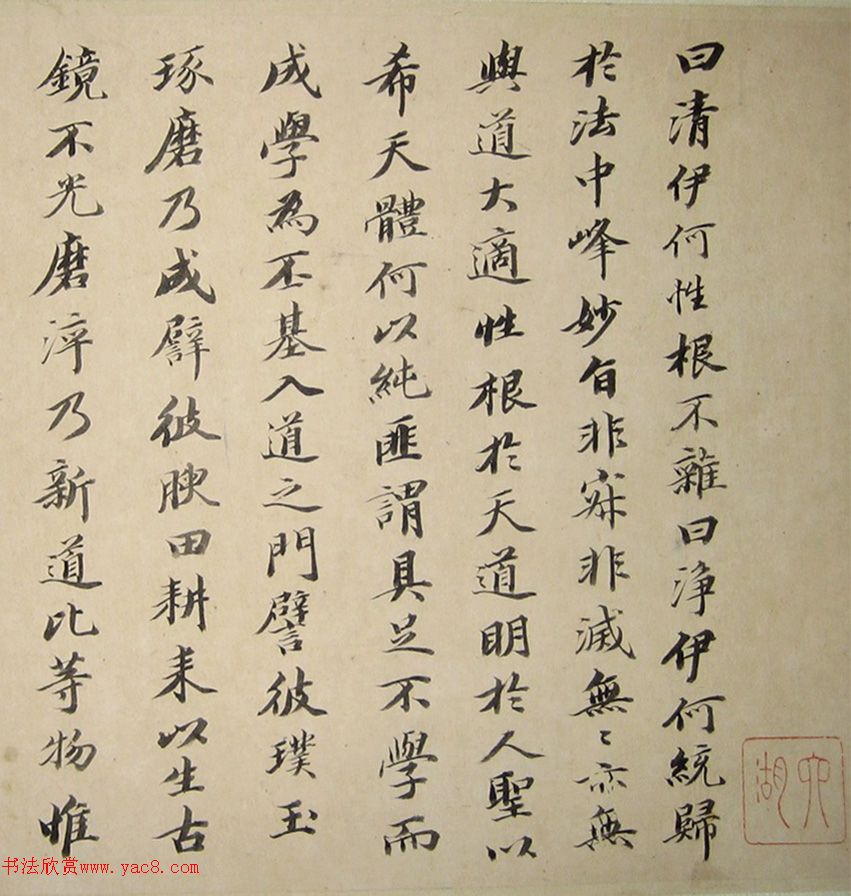 曰清伊何性根不雜曰淨伊何統歸
於法中峰妙旨非寂非滅無〻亦無
與道大適性根於天道明於人聖以
希天體何以純匪謂具足不學而
成學為丕基入道之門譬彼璞玉
琢磨乃成譬彼腴田耕耒以生古
鏡不光磨淬乃新道比等物惟
书法欣赏www.yac8.com